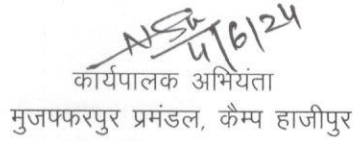 4/6/24
कार्यपालक अभियंता
मुजफ्फरपुर प्रमंडल, कैम्प हाजीपुर